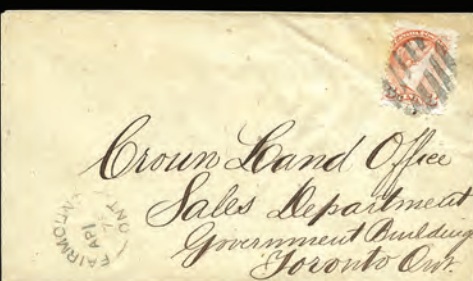 Crown Land Office
Sales Department
Government Building
Toronto Ont.
FAIRMOUNT
AP1
ONT